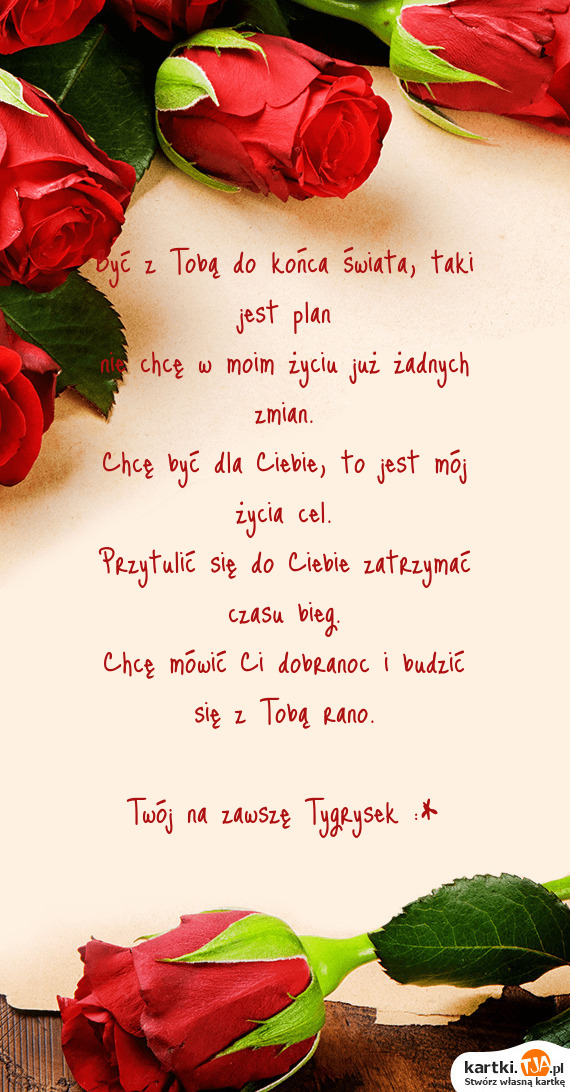 Być z Tobą do końca świata, taki
jest plan
nie chcę w moim życiu już żadnych
zmian.
Chcę być dla Ciebie, to jest mój
życia cel.
Przytulić się do Ciebie zatrzymać
czasu bieg.
Chcę mówić Ci dobranoc i budzić
się z Tobą rano.
Twój na zawszę Tygrysek :*
kartki.TJA.pl
Stwórz własną kartkę